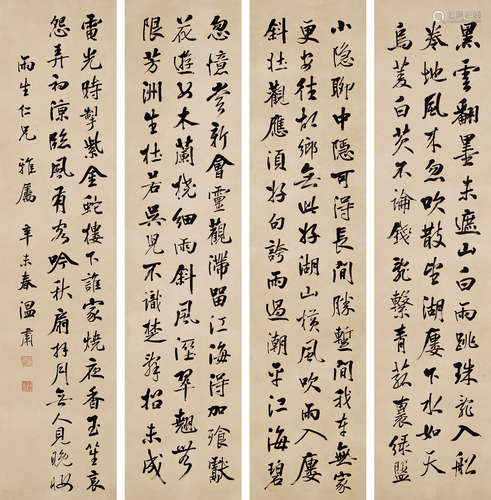 黑雲翻墨未遮山白雨跳珠亂入船
卷地風來忽吹散望湖樓下水如天
烏菱白芡不論錢亂繫青菰裹綠盤
忽憶嘗新會靈觀滯留江海得加飡獻
花遊女木蘭橈細雨斜風溼翠翹無
限芳洲生杜若吳兒不識楚辭招未成
小隱聊中隱可得長閒勝暫閒我本無家
更安往故鄉無此好湖山橫風吹雨入樓
斜壯觀應須好句誇雨過潮平江海碧
電光時掣紫金蛇樓下誰家燒夜香玉笙哀
怨弄初涼臨風有客吟秋扇拜月無人見晚妝
雨生仁兄雅屬 辛未春溫肅